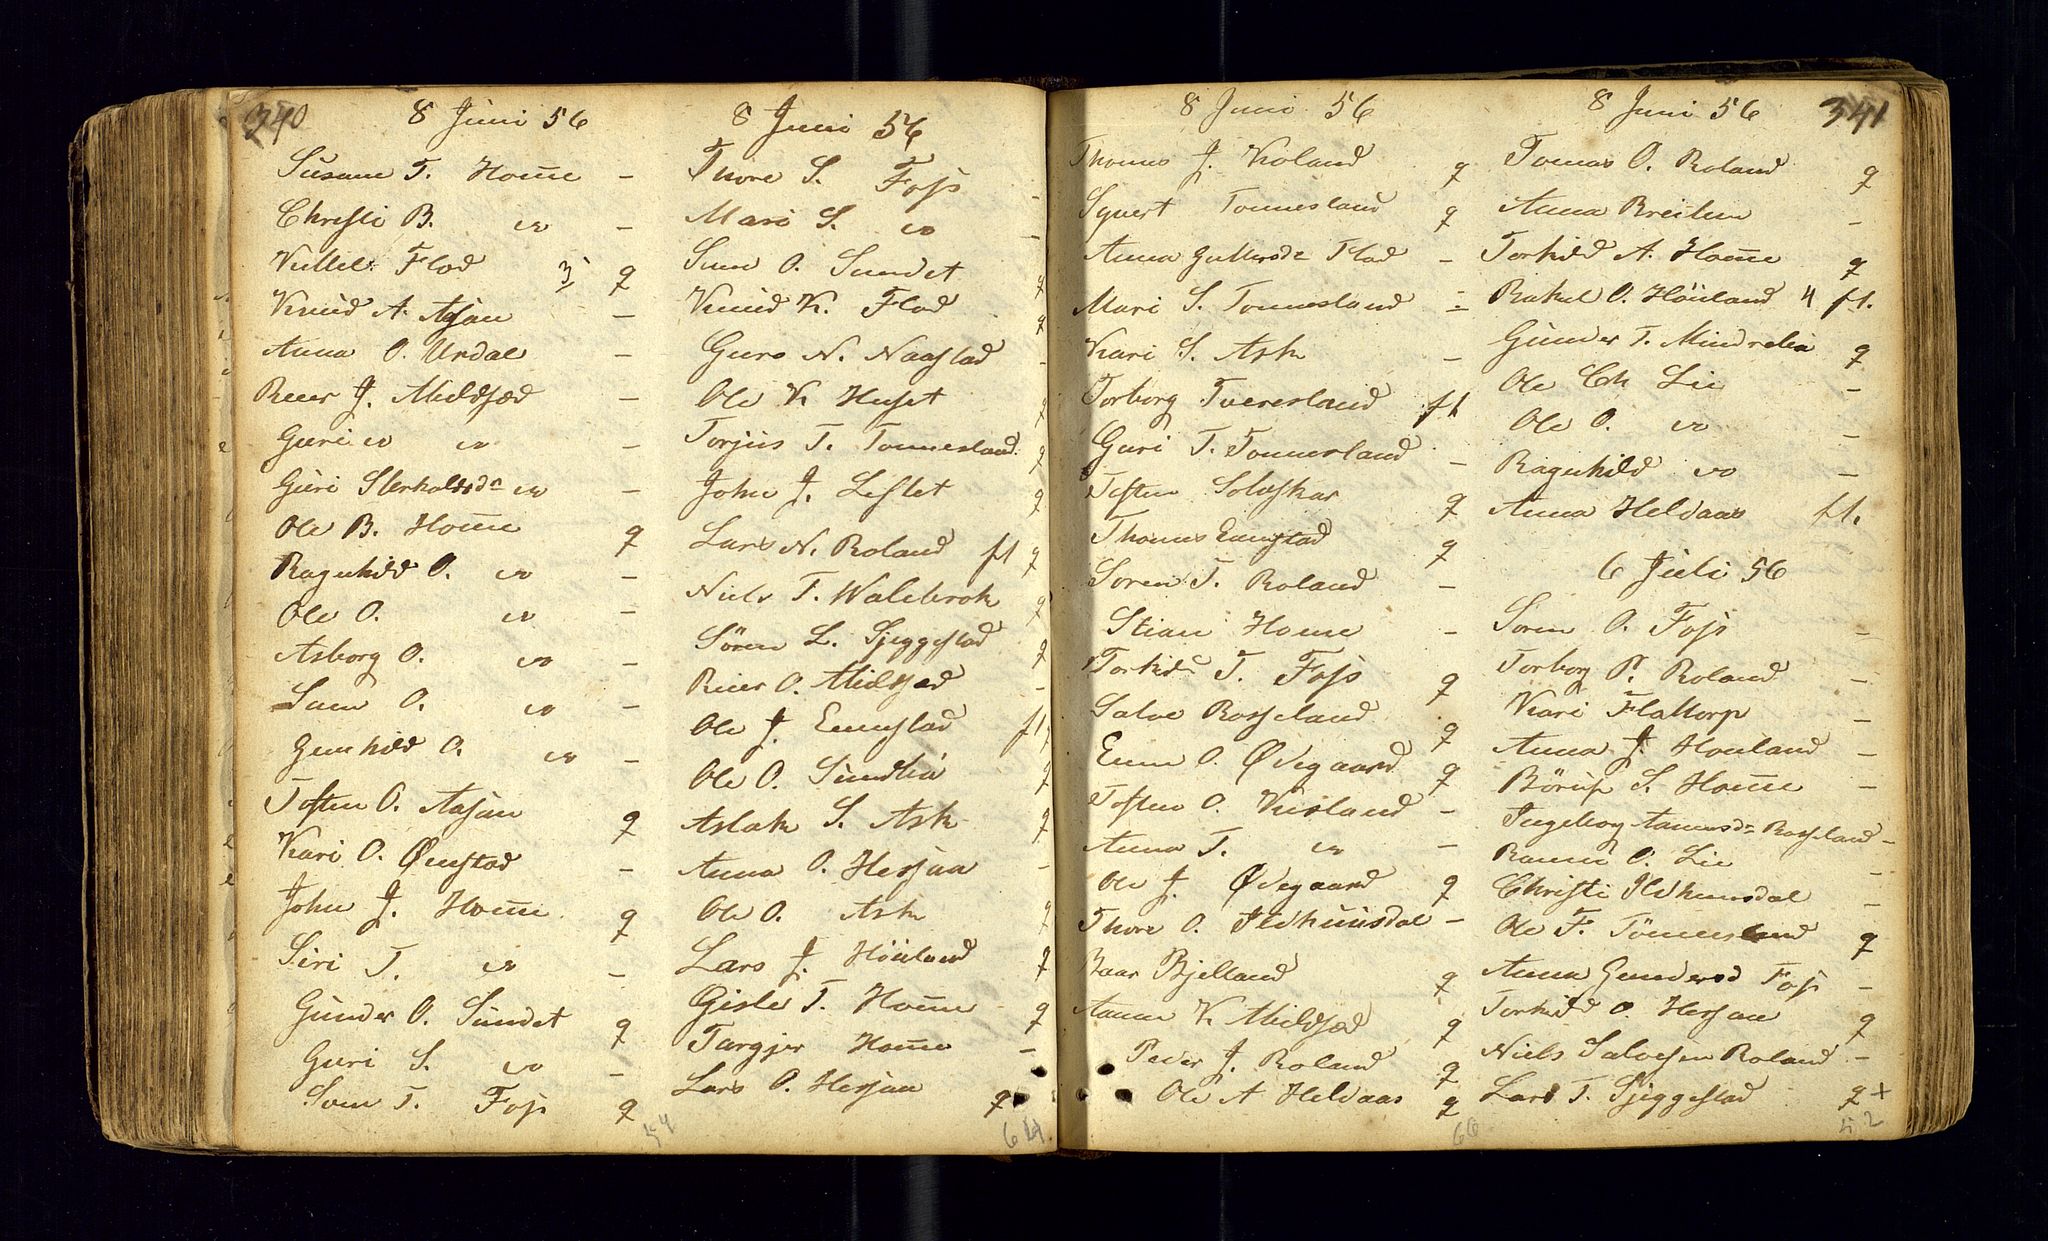 340
8 Juni 56
Susane T. Home -
Christi B. do -
Kittel Flod 3 g
Knud A. Aasen -
Anna O. Urdal -
Reier J. Mildsæd -
Guri do do -
Guri Sterkolsd. do -
Ole B. Home g
Ragnhild O. do -
Ole O. do -
Asborg O. do -
Sam O. do -
Gunhild O. do -
Tosten O. Aasen g
Kari O. Øvstad -
John J. Home g
Siri T. do -
Gunder O. Sundet g
Guri S. do -
Som T. Foss g
54
8 Juni 56
Thore S. Foss -
Mari S. do -
Sam O. Sundet g
Knud K. Flod g
Guro N. Naastad -
Ole K Huset g
Torjus T. Tonnesland g
John J. Leslet g
Lars N. Roland ft g
Niels T. Walebrok g
Søren L. Sjeggestad g
Reier O. Mildsæd -
Ole J. Evenstad ft
Ole O. Sundlia g
Aslak S. Ask g
Anna O. Hersjaa -
Ole O. Ask g
Lars J. Høiland g
Gisle T. Home g
Targjer Home -
Lars O. Hersjaa g
64
8 Juni 56
Thomes J. Roland g
Syvert Tonnesland g
Anna Guttersd. Flod -
Mari S. Tonnesland -
Kari S. Ask -
Torborg Tveresland ft
Guri T. Tonnesland -
Tosten Solaskar g
Thomes Evenstad g
Soren T. Roland -
Stian Home -
Torkild T. Foss g
Salve Rosseland g
Even O. Ødegaard g
Tosten O. Kirsland -
Anna T. do -
Ole J. Ødegaard g
Thore O. Ildhunsdal -
Baar Bjelland g
Aanen K Mildsæd g
Peder J. Roland g
Ole A Heldaas g
66
8 Juni 56 341
Tomas O. Roland g
Anna Breilien -
Torkild A. Home g
Rakel O. Høiland 4 ft.
Gunder T. Mindrelia g
Ole Ch Lie -
Ole O. do -
Ragnhild do -
Anna Heldaas ft.
6 Juli 56
Soren O. Foss -
Torborg P. Roland -
Kari Flattorp -
Anna J. Houland -
Børup S. Home -
Ingeborg Aanensd. Rosseland -
Ranni O. Lie -
Christi Ildhunsdal -
Ole F. Tønnesland g
Anna Gundersd Foss -
Torkild O. Hersjaa g
Niels Salvesen Roland -
Lars T. Sjeggestad g +
52